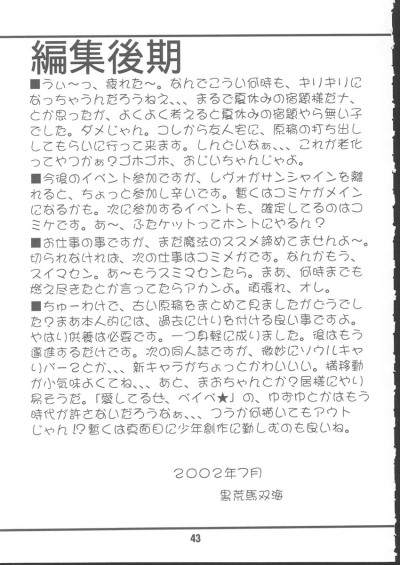 編集後期
■うぃ〜っ、疲れた〜。なんでこうい何時も、キリキリに
なっちゃうんだろうねえ、、、まるで夏休みの宿題様だナ、
とか思ったが、よくよく考えると夏休みの宿題やら無い子
でした。ダメじゃん。コしから友人宅に、原稿の打ち出し
してもらいに行って来ます。しんどいなぁ、、、これが老化
ってやつかぁ?ゴホゴホ、おじいちゃんじゃよ。
■今後のイベント参加ですが、レヴォがサンシャインを離
れると、ちょっと参加し辛いです。暫くはコミケがメイン
になるかも。次に参加するイベントも、確定してるのはコ
ミケです。あ〜、ふたケットってホントにやるん?
■お仕事の事ですが、まだ魔法のススメ諦めてませんよ〜。
切られなければ、次の仕事はコミメガです。なんかもう、
スイマセン。あ〜もうスミマセンたら。まあ、何時までも
燃え尽きたとか言ってたらアカンよ。頑張れ、オレ。
■ちゅーわけで、古い原稿をまとめて見ましたがどうでし
た?まあ本人的には、過去にけりを付ける良い事ですよ。
やはい供養は必要です。一つ身軽に成りました。後はもう
邁進するだけです。次の同人誌ですが、微妙にソウルキャ
リバー2とか、、、新キャラがちょっとかわいい。横移動
が小気味よくてね、、、あと、まおちゃんとか?居様にやい
易そうだ。「愛してるぜ、ベイベ★」の、ゆずゆとかはもう
時代が許さないだろうなぁ、、、つうか何描いてもアウト
じゃん!?暫くは真面目に少年創作に勤しむのも良いね。
2002年7月
黒荒馬双海
43